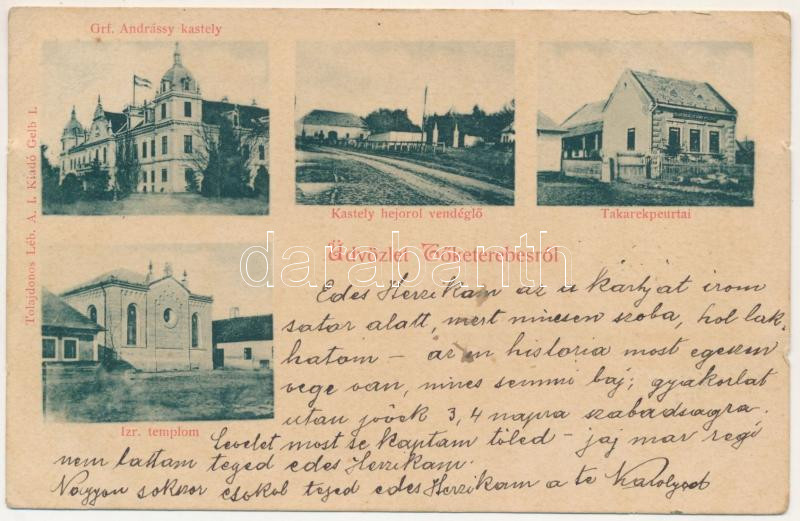 Grf. Andrássy kastely
Kastely hejorol vendéglő
Takarekpeurtai
Tolajdonos Léb. A. I. Kiadó Gelb I.
Üdvözlet Tőketerebesről
darabanth
Izr. templom
Edes Herzikam az is kártyát irom
sator alatt, mert nincsen szoba, hol lak-
hatom – az en historia most egeszen
vege van, nincs semmi baj; gyakorlat
utan jövök 3, 4 napra szabadsagra.
Levelet most se kaptam töled – jaj mar regi
nem lattam teged edes Herzikam.
Nagyon sokszor csokol teged edes Herzikam a te Karolyod